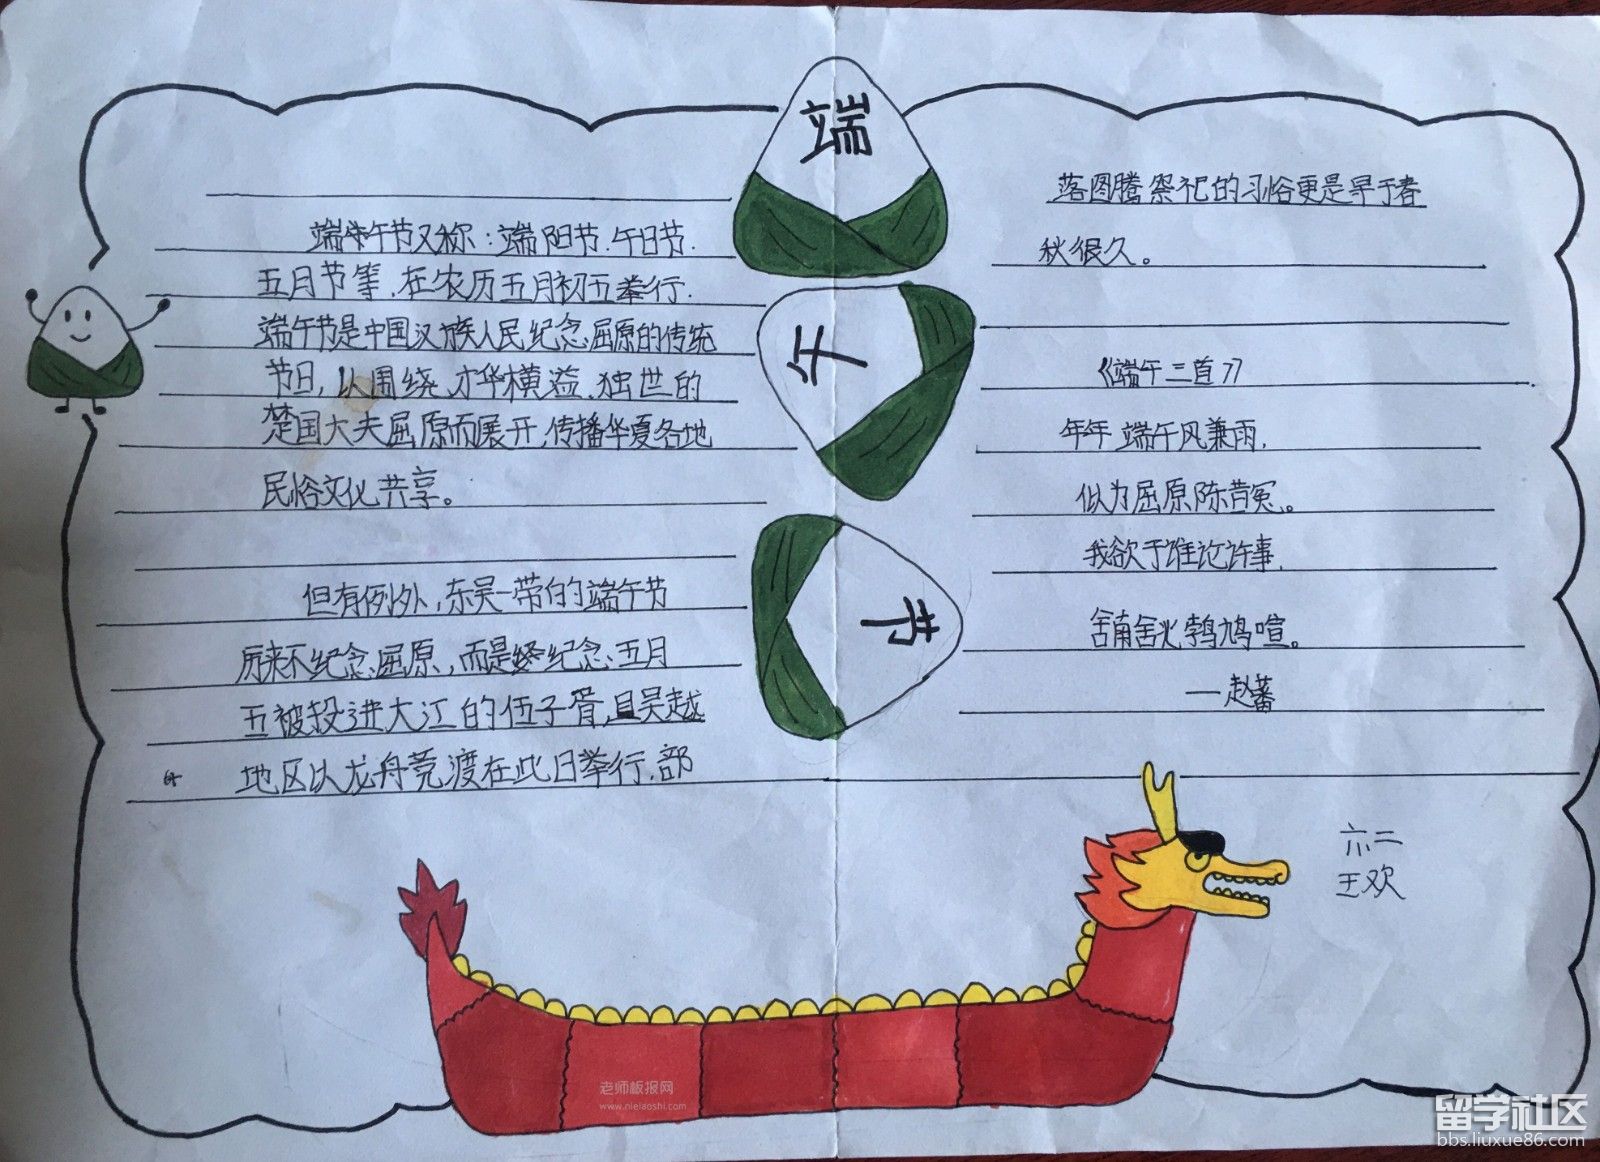 端
午
节
端午节又称：端阳节.午日节.
五月节等.在农历五月初五举行.
端午节是中国汉族人民纪念屈原的传统
节日，以围绕才华横溢.独世的
楚国大夫屈原而展开,传播华夏各地
民俗文化共享。
但有例外，东吴一带的端午节
历来不纪念屈原，而是纪念五月
五被投进大江的伍子胥,且吴越
地区以龙舟竞渡在此日举行.部
落图腾祭祀的习俗更是早于春
秋很久。
《端午三首》
年年端午风兼雨,
似为屈原陈昔冤。
我欲于谁论许事,
舍南舍北鹁鸠喧。
—赵蕃
六二
王欢
老师板报网
www.nielaoshi.com
留学社区
bbs.liuxue86.com